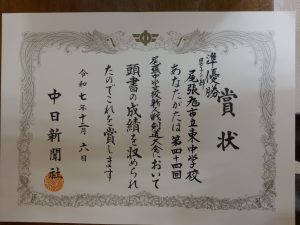 賞状
準優勝
尾張旭市立東中学校
あなたがたは第四十四回
尾張中学校剣道大会において
頭書の成績を収められ
たのでこれを賞します
令和七年十二月六日
中日新聞社